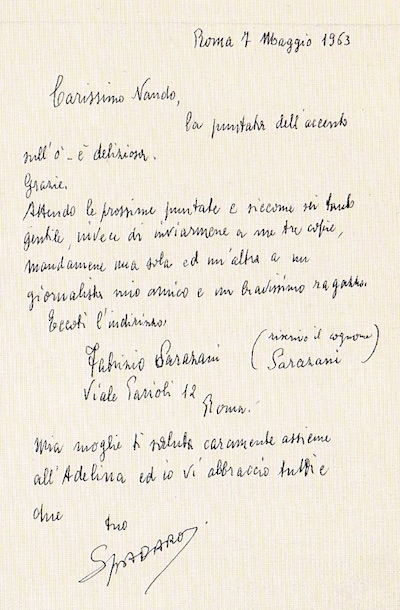 Roma 7 Maggio 1963
Carissimo Nando,
la puntata dell'accento
sull'ò - è deliziosa.
Grazie.
Attendo le prossime puntate e siccome sei tanto
gentile, invece di inviarmene a me tre copie,
mandamene una sola ed un'altra a un
giornalista mio amico e un bravissimo ragazzo.
Eccoti l'indirizzo:
Fabrizio Sarazani (riscrivo il cognome)
Viale Parioli 12 Sarazani
Roma.
Mia moglie ti saluta caramente assieme
all'Adelina ed io vi abbraccio tutti e
due
tuo
SPADARO.